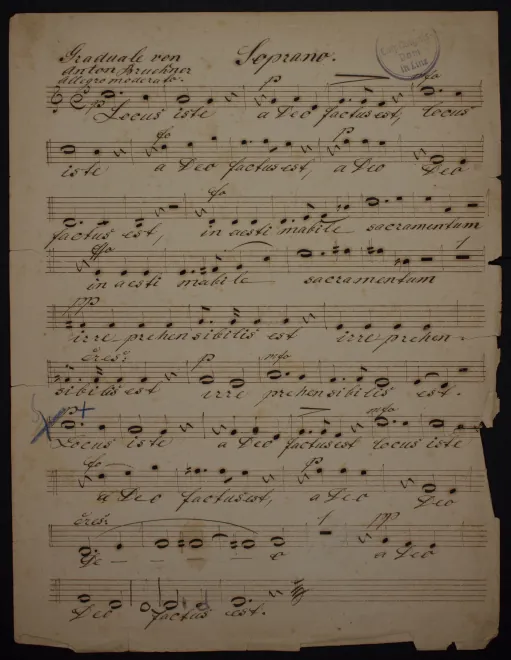 Graduale von Soprano.
Anton Bruckner
Allegro moderato.
p mfo
p Locus iste a Deo factus est, locus
fo p
iste a Deo factus est, a Deo Deo
fo
factus est, in aesti mabile sacramentum
ffo
in aesti mabile sacramentum
ppp
irre prehensibilis est irre prehen-
cresc: p mfo
sibilis est irre prehensibilis est.
p mfo
Locus iste a Deo factus est locus iste
fo p
a Deo factus est, a Deo Deo
cres: 1 pp
De — — — o a Deo
Deo factus est.